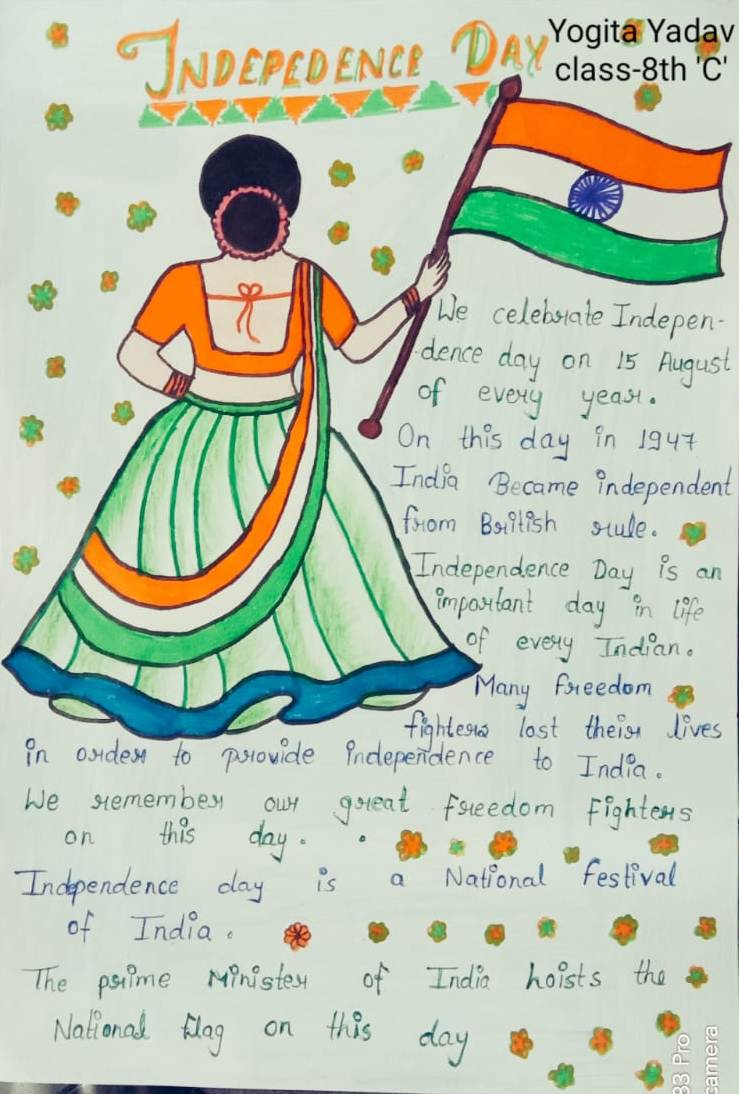 INDEPEDENCE DAY
Yogita Yadav
class-8th 'C'
We celebrate Indepen-
dence day on 15 August
of every year.
On this day in 1947
India Became independent
from British rule.
Independence Day is an
important day in life
of every Indian.
Many freedom
fighters lost their lives
in order to provide independence to India.
We remember our great freedom Fighters
on this day.
Independence day is a National festival
of India.
The prime Minister of India hoists the
National flag on this day
83 Pro
camera